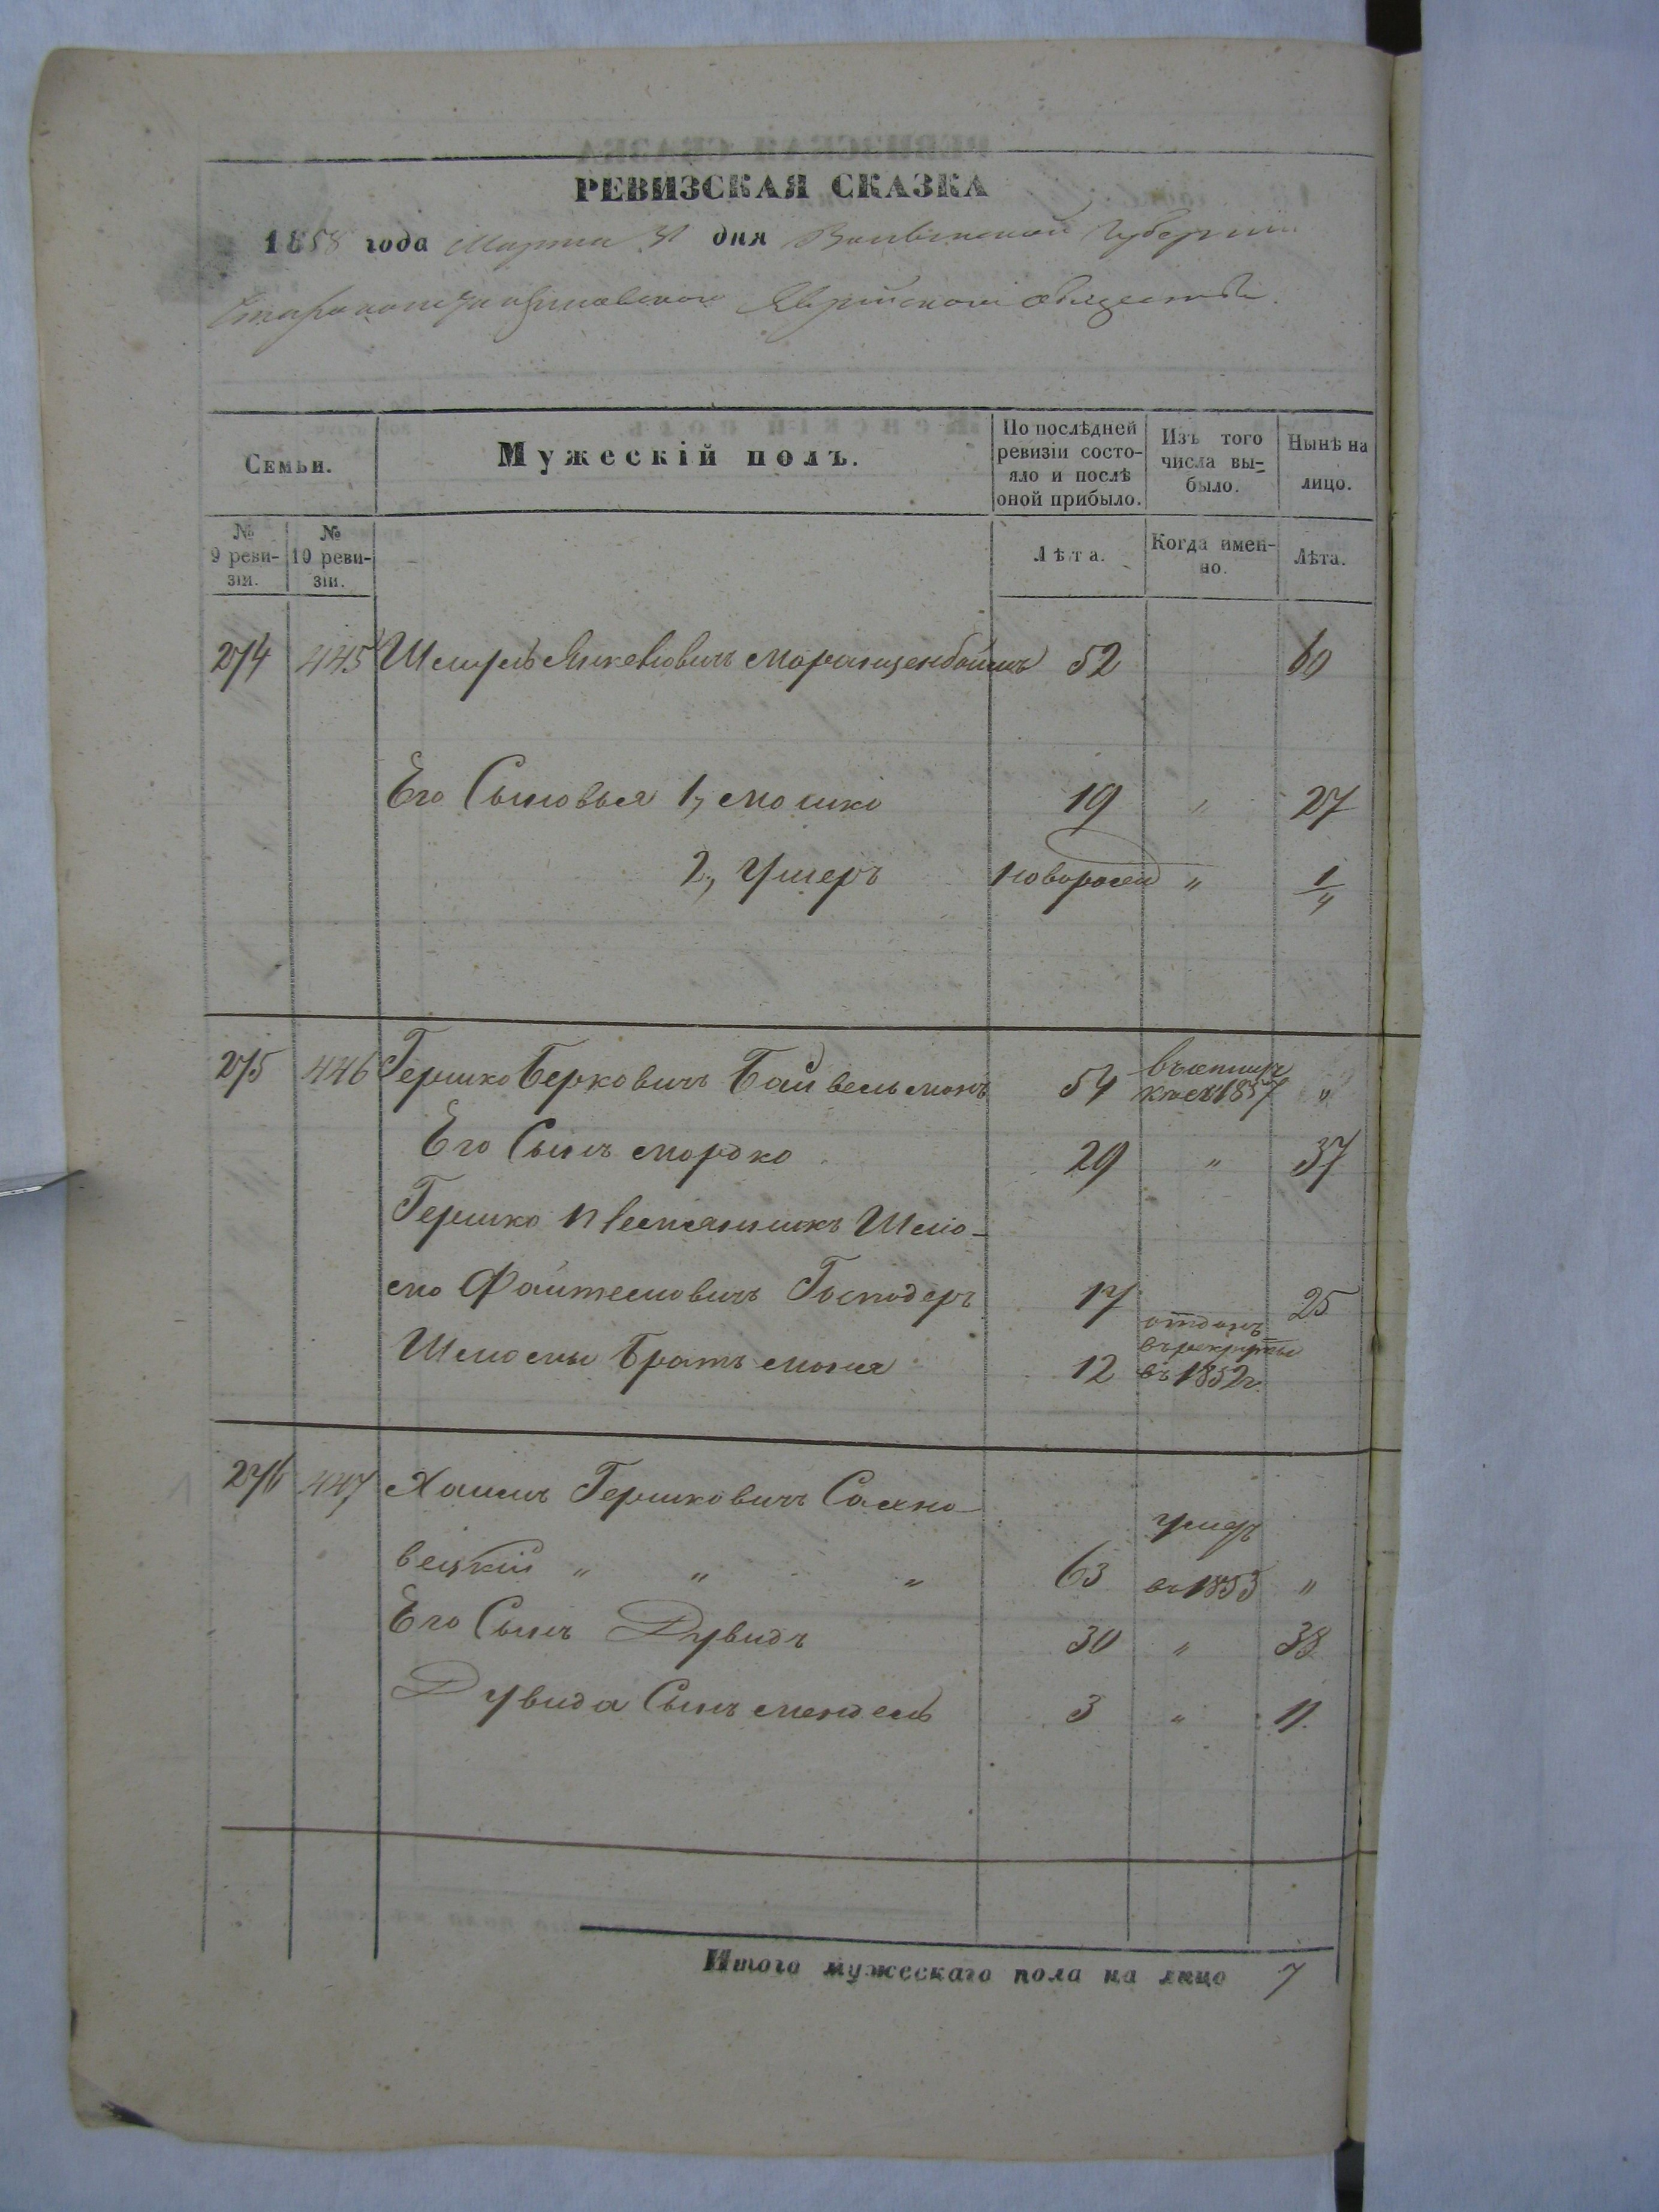 РЕВИЗСКАЯ СКАЗКА
1858 года Марта 31 дня Волынской Губернии
Староконстантиновского Еврейского общества.
Семьи.
Мужескій полъ.
По послѣдней ревизіи состояло и послѣ оной прибыло.
Изъ того числа выбыло.
Нынѣ на лицо.
№ 9 ревизіи.
№ 10 ревизіи.
Лѣта.
Когда именно.
Лѣта.
274 445 Шмуль Янкелович 52 60
Его Сыновья 1, Мошко 19 „ 27
2, Ушеръ новорожд „ 1/4
275 446 Гершко Берковичъ Байвельманъ 54 1857 „
Его Сынъ Мордко 29 „ 37
Гершко Племянникъ Шлио-
мо Файтелиовичъ Господаръ 17 25
Шлиомы Братъ Моня 12 отданъ въ рекруты въ 1852г.
276 447 Хаимъ Гершковичъ Сахно-
вецкій „ „ „ 63 умеръ въ 1853 „
Его Сынъ Дувидъ 30 „ 38
Дувида Сынъ Мендель 3 „ 11.
Итого мужескаго пола на лицо 7